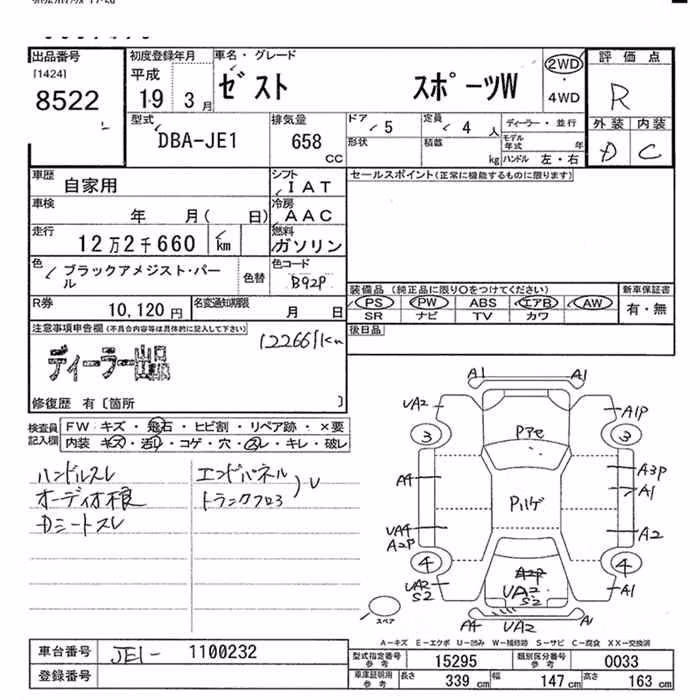 出品番号
[1424]
8522
初度登録年月
平成
19 3月
車名・グレード
ゼスト スポーツW
2WD
・
4WD
評価点
R
外装 内装
D C
型式
DBA-JE1
排気量
658
CC
ドア
5
形状
定員
4 人
積載
kg
ディーラー・並行
モデル
年式 年
ハンドル 左・右
車歴
自家用
シフト
IAT
セールスポイント(正常に機能するものに限ります)
車検
年 月( 日)
冷房
AAC
走行
12万2千660 km
燃料
ガソリン
色
ブラックアメジスト・パー
ル
色替
色コード
B92P
装備品 (純正品に限り○をつけてください)
PS PW ABS エアB AW
SR ナビ TV カワ
新車保証書
有・無
R券
10,120円
名変通知期限
月 日
後日品
注意事項申告欄(不具合内容等は具体的に記入して下さい)
122661km
ディーラー出品
修復歴 有〔箇所 〕
検査員
記入欄
FW キズ・飛石・ヒビ割・リペア跡・×要
内装 キズ・汚れ・コゲ・穴・スレ・キレ・破レ
ハンドルスレ
オーディオ根
Dシートスレ
エンドパネル
トランクフロ
U
A1 A1
UA2 A1P
3 3
Pアモ
A4
Pハゲ
A3P
A1
UA4
A2P
A2
4 4
UA2
S2
A2P
UA2
S2
A1
スペア
A4 UA2 A1
A-キズ E-エクボ U-凹み W-補修跡 S-サビ C-腐食 XX-交換済
車台番号
JE1- 1100232
登録番号
型式指定番号
参考
15295
類別区分番号
参考
0033
車庫証明用
参考
長さ
339 cm
幅
147 cm
高さ
163 cm